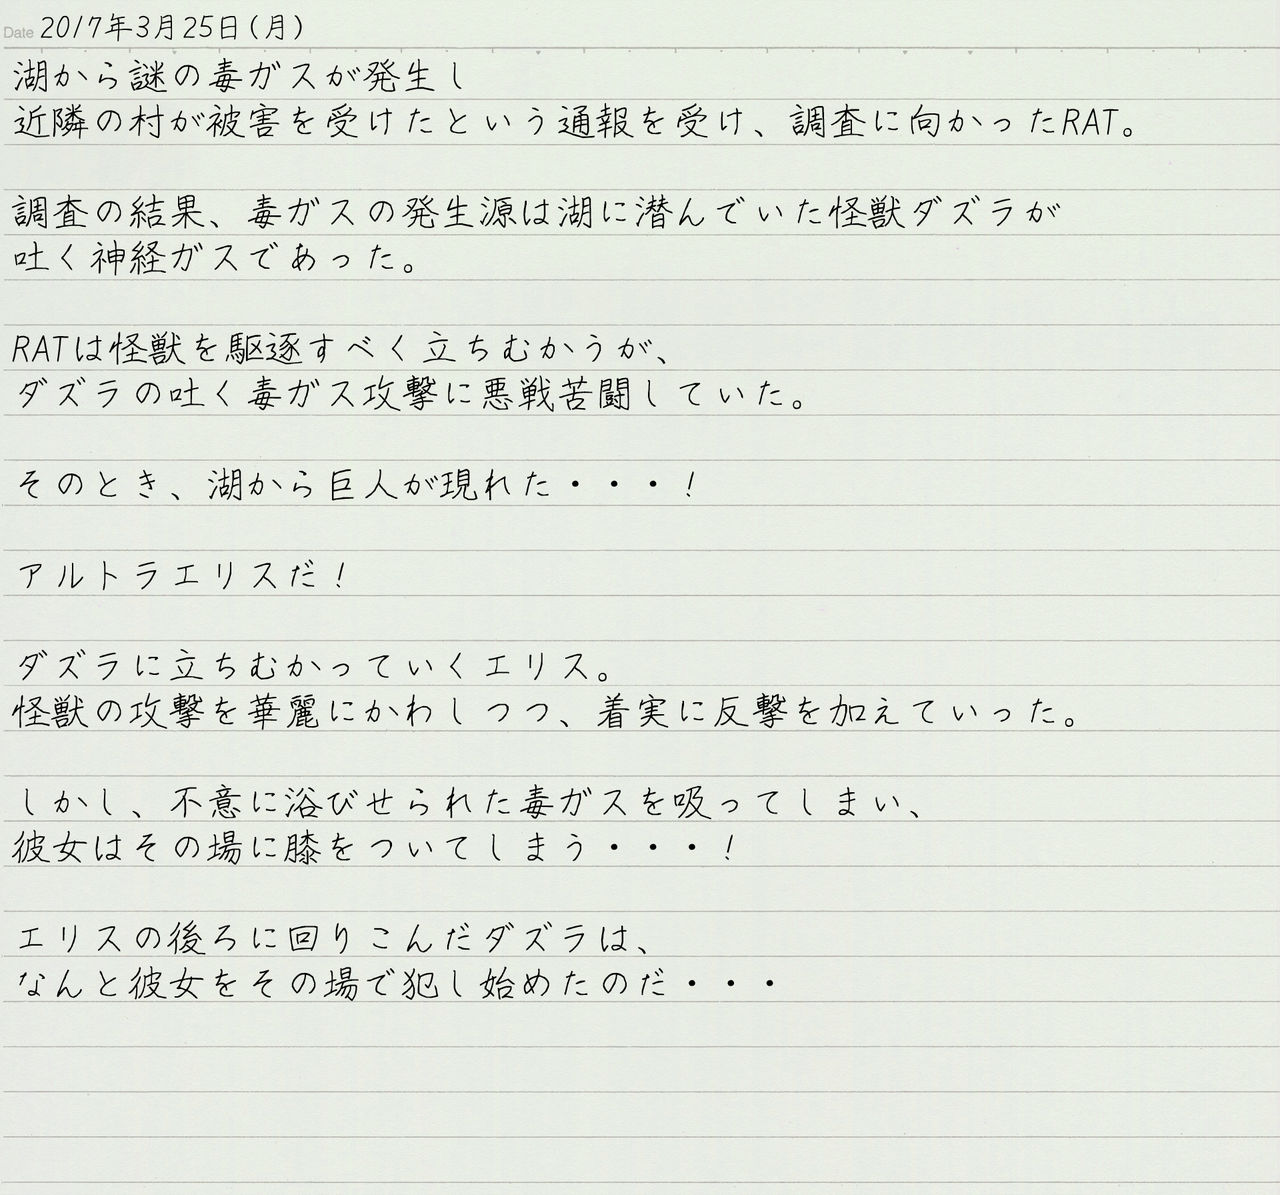 Date 2017年3月25日(月)
湖から謎の毒ガスが発生し
近隣の村が被害を受けたという通報を受け、調査に向かったRAT。
調査の結果、毒ガスの発生源は湖に潜んでいた怪獣ダズラが
吐く神経ガスであった。
RATは怪獣を駆逐すべく立ちむかうが、
ダズラの吐く毒ガス攻撃に悪戦苦闘していた。
そのとき、湖から巨人が現れた・・・!
アルトラエリスだ!
ダズラに立ちむかっていくエリス。
怪獣の攻撃を華麗にかわしつつ、着実に反撃を加えていった。
しかし、不意に浴びせられた毒ガスを吸ってしまい、
彼女はその場に膝をついてしまう・・・!
エリスの後ろに回りこんだダズラは、
なんと彼女をその場で犯し始めたのだ・・・